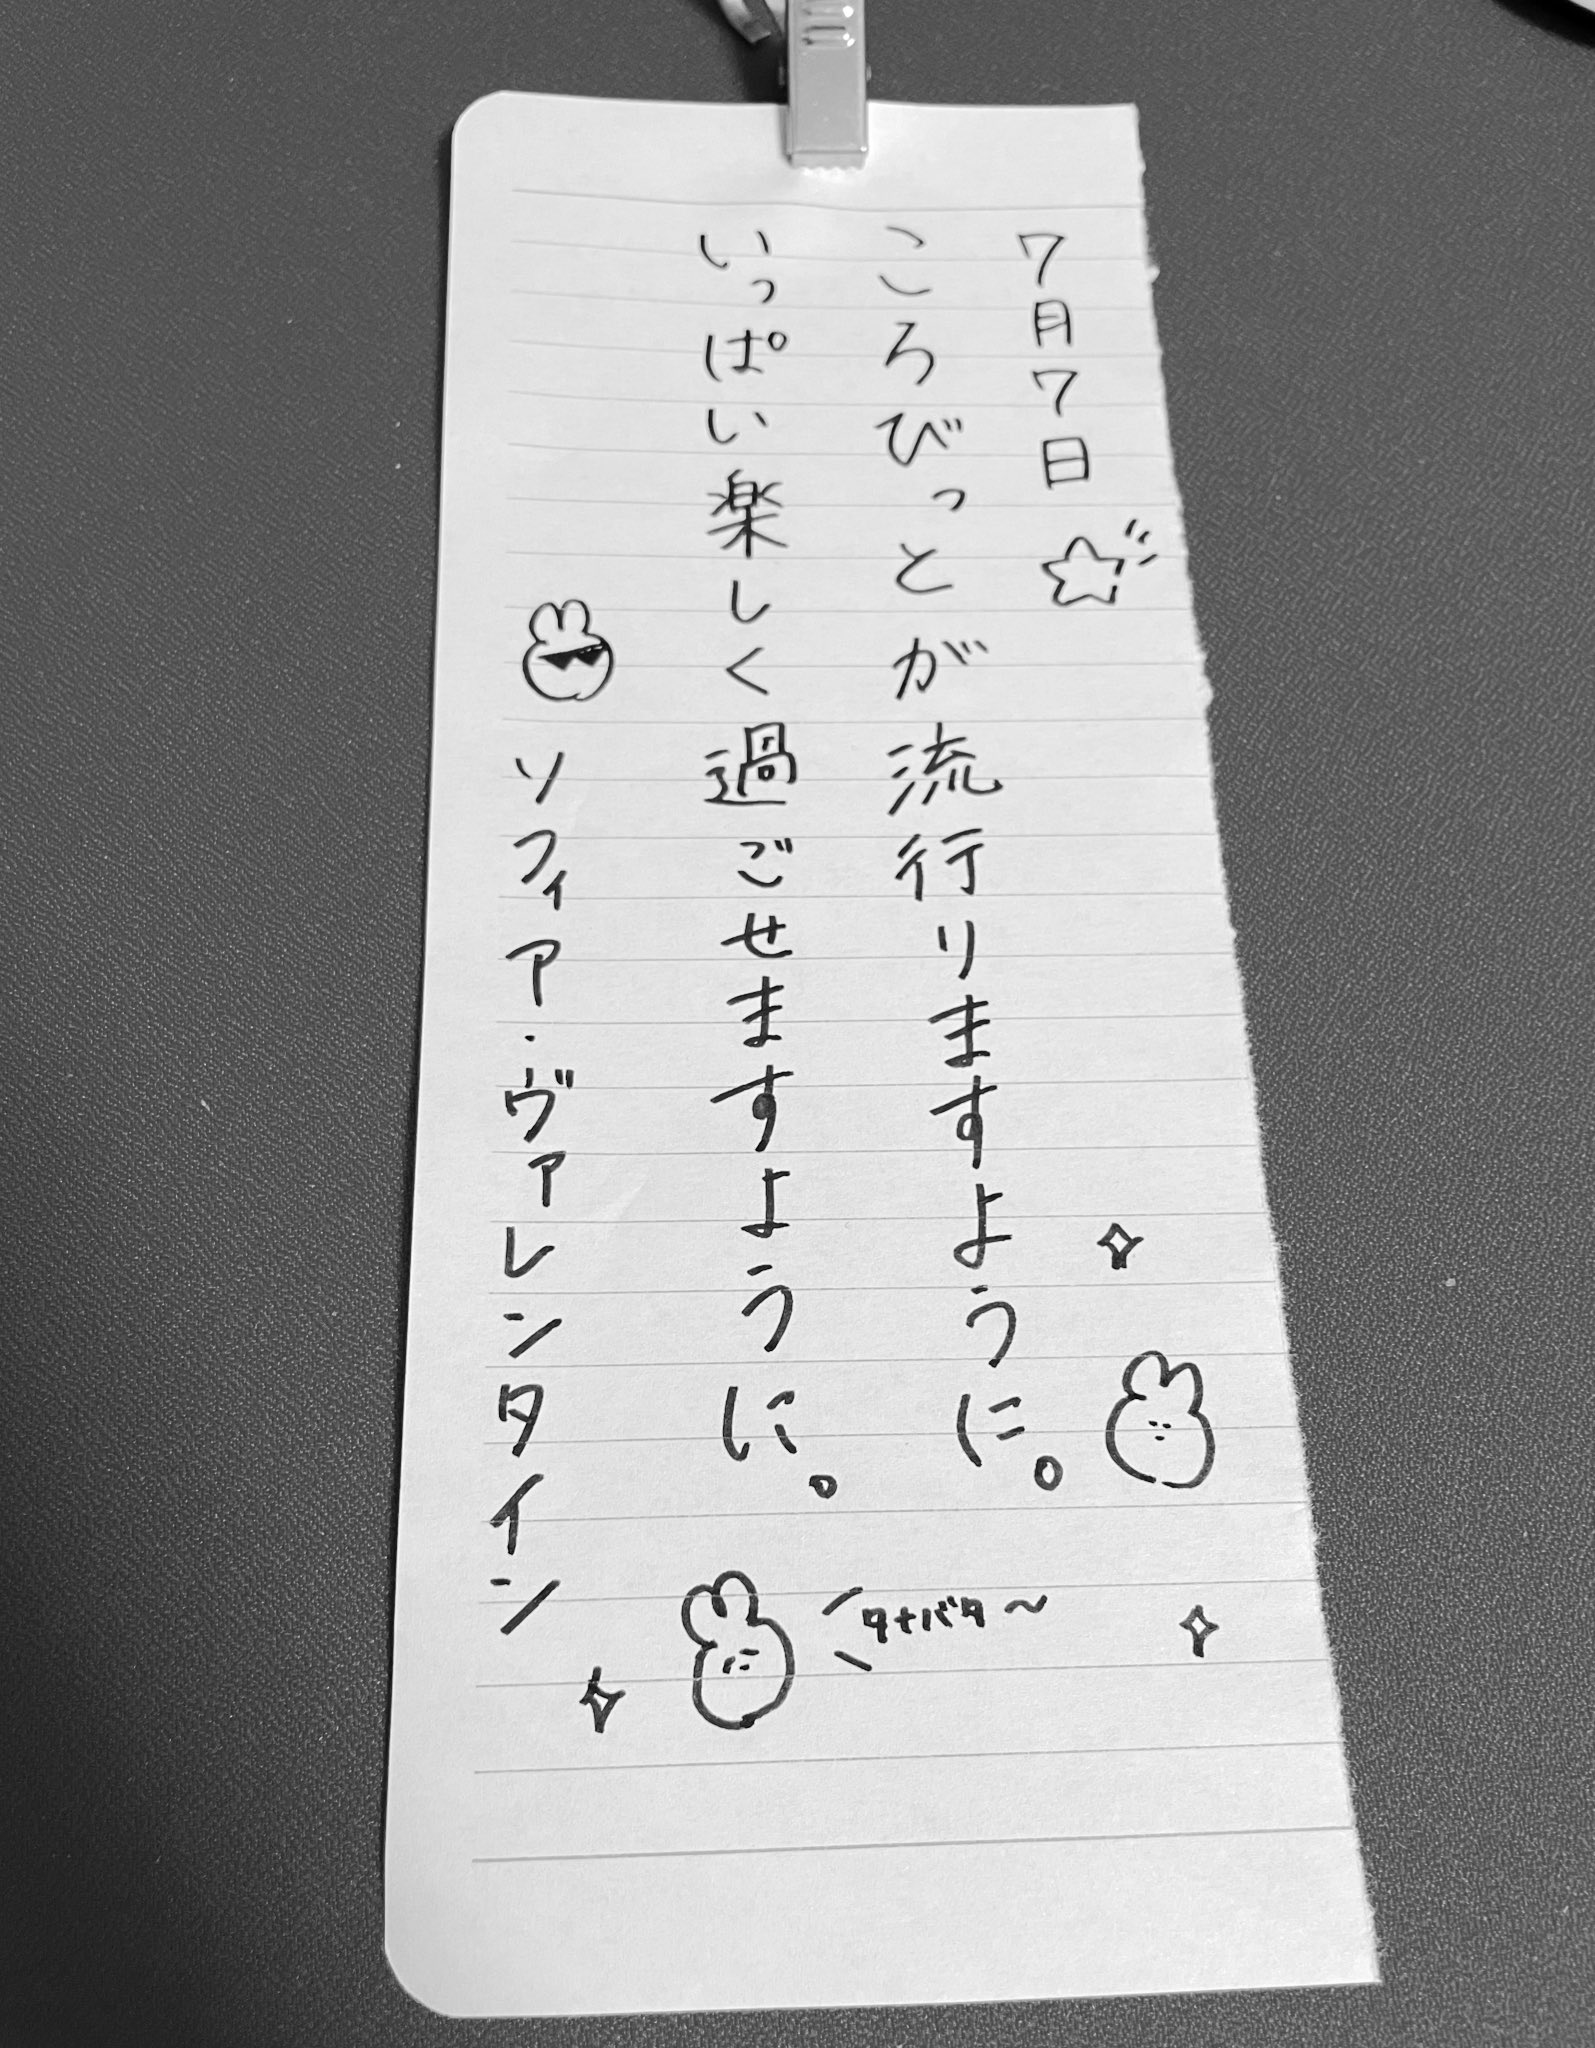 7月7日
ころびっとが流行りますように。
いっぱい楽しく過ごせますように。
ソフィア・ヴァレンタイン
タナバタ〜